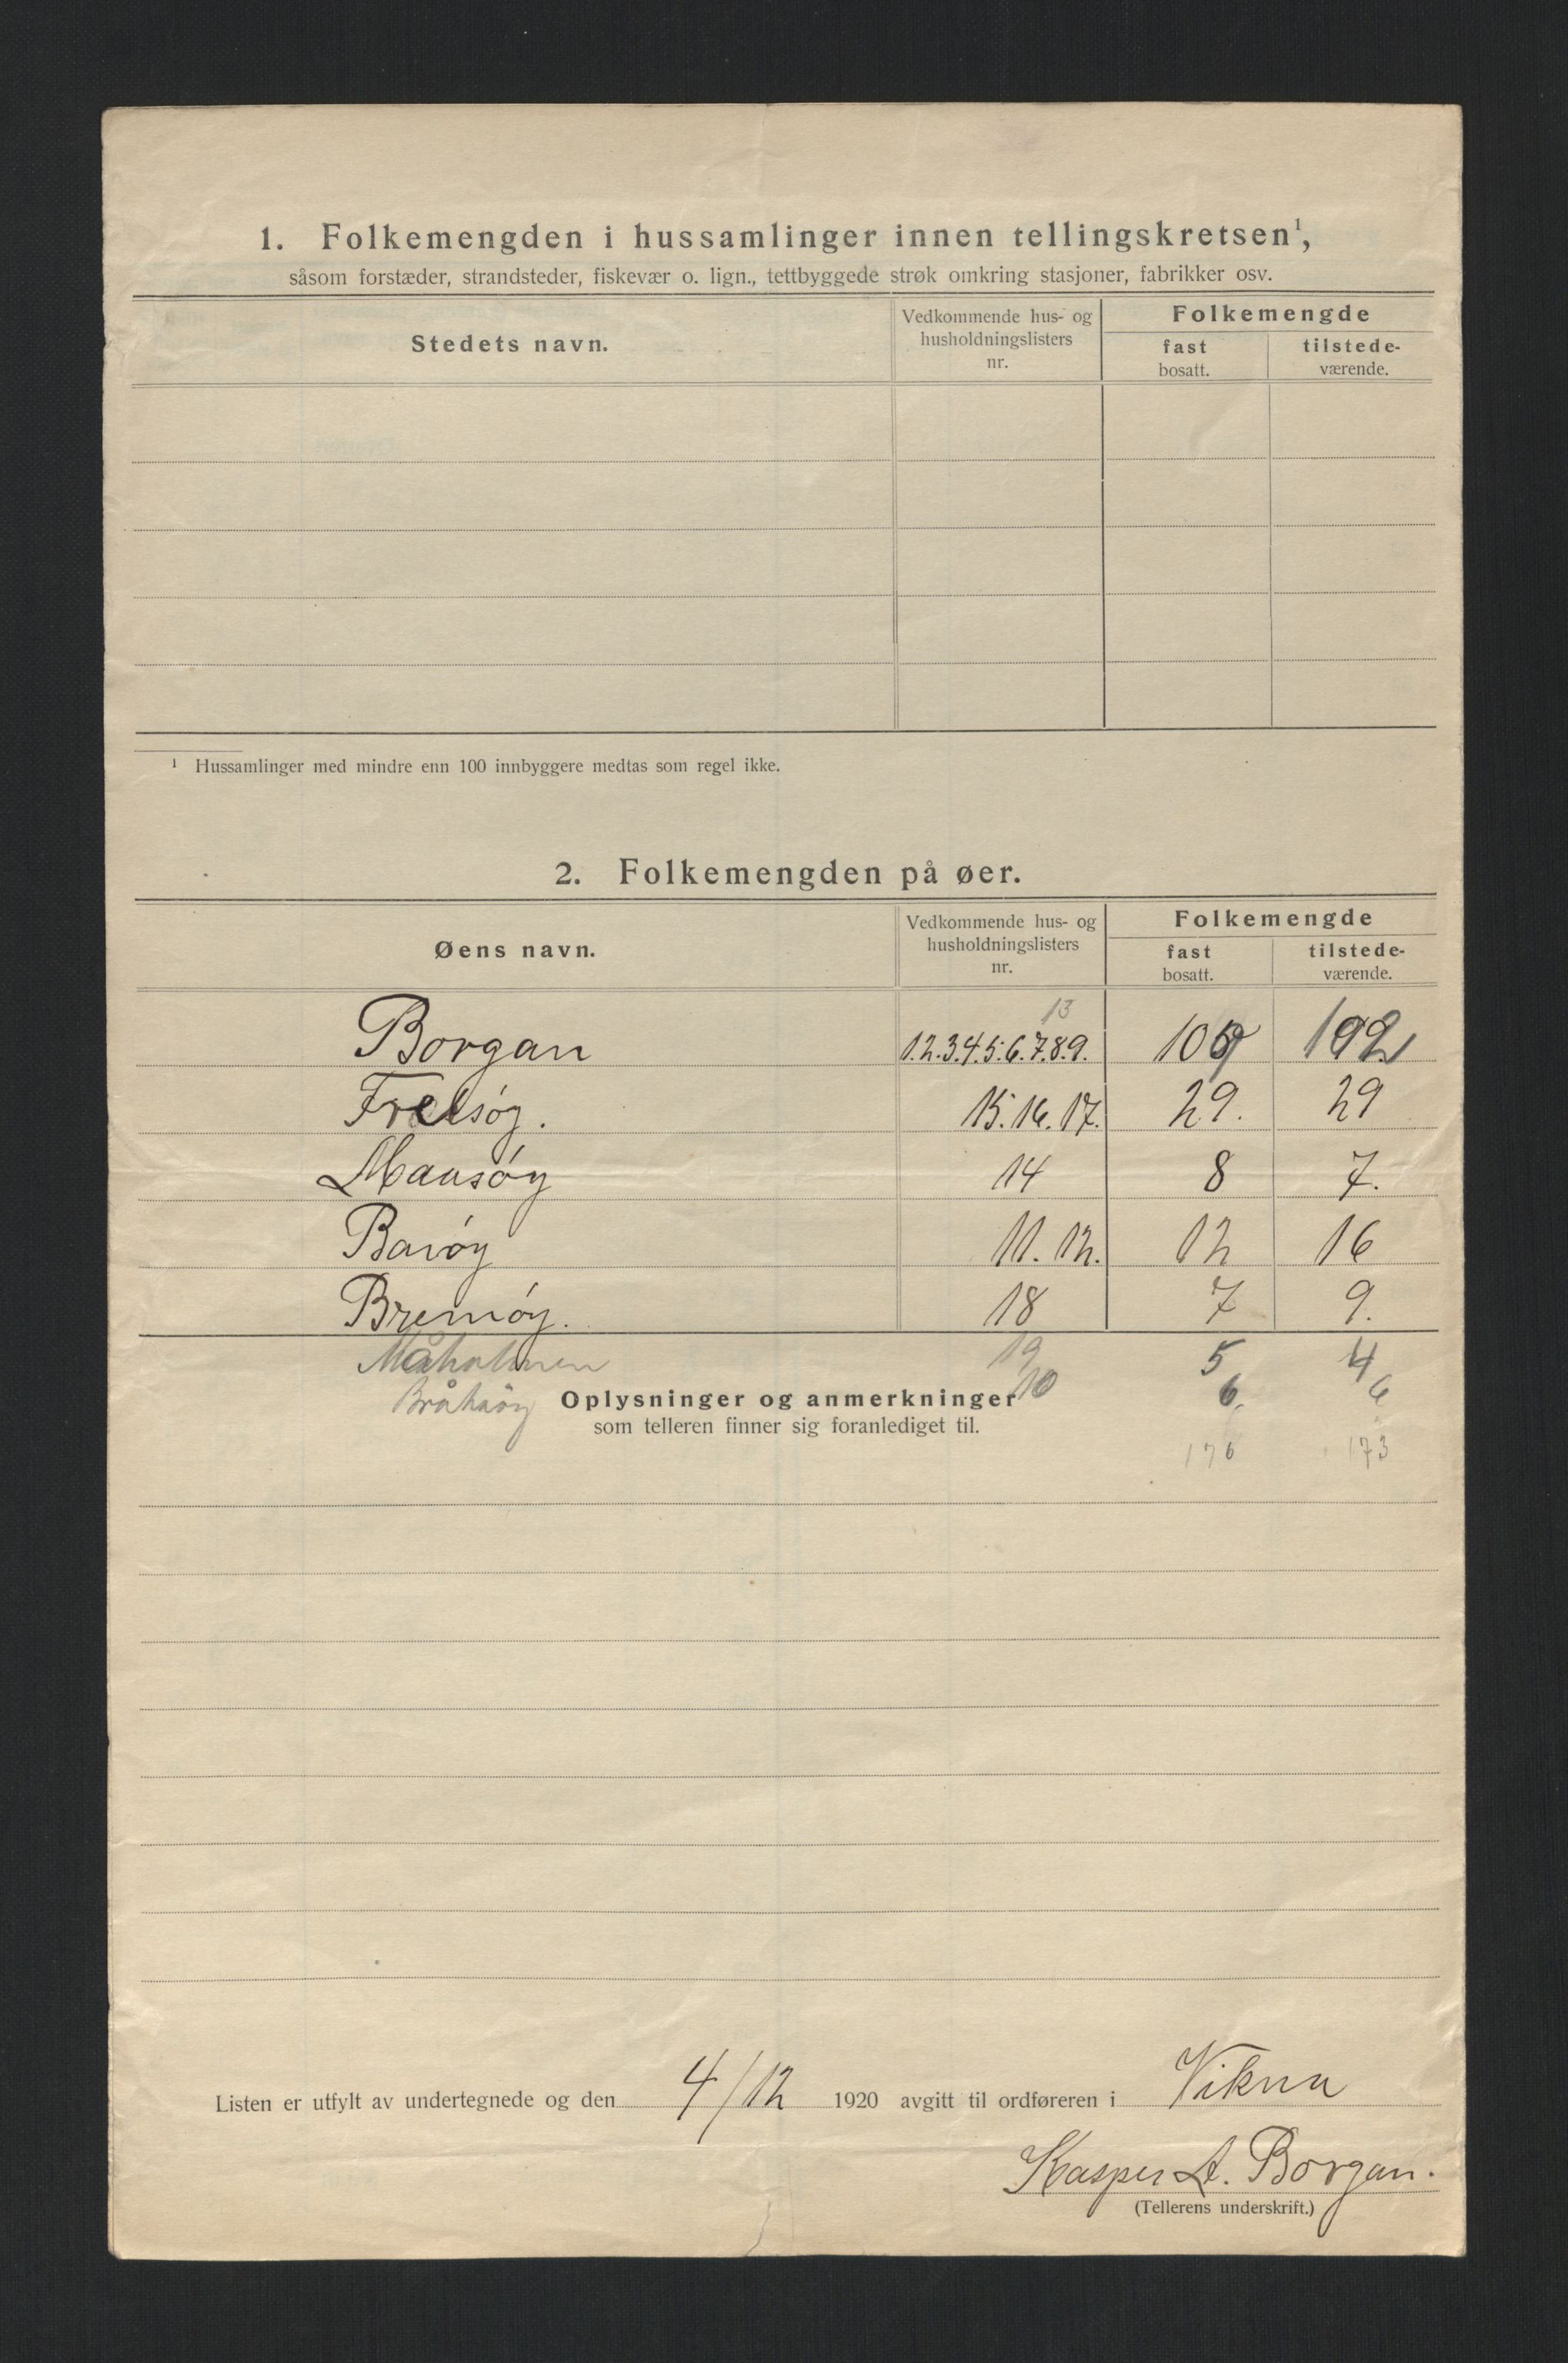 1. Folkemengden i hussamlinger innen tellingskretsen¹,
såsom forstæder, strandsteder, fiskevær o. lign., tettbyggede strøk omkring stasjoner, fabrikker osv.
Stedets navn.
Vedkommende hus- og husholdningslisters nr.
Folkemengde
fast bosatt.
tilstede-værende.
¹ Hussamlinger med mindre enn 100 innbyggere medtas som regel ikke.
2. Folkemengden på øer.
Øens navn.
Vedkommende hus- og husholdningslisters nr.
Folkemengde
fast bosatt.
tilstede-værende.
13
Borgan 1.2.3.4.5.6.7.8.9. 109 102
Frelsøy. 15.16.17. 29. 29
Mansøy 14 8 7.
Barøy 11. 12. 12 16
Bremøy. 18 7 9.
Måholmen 19 5 4
10 6 6
Oplysninger og anmerkninger
som telleren finner sig foranlediget til.
176 173
Listen er utfylt av undertegnede og den 4/12 1920 avgitt til ordføreren i Vikna
Kasper A. Borgan.
(Tellerens underskrift.)